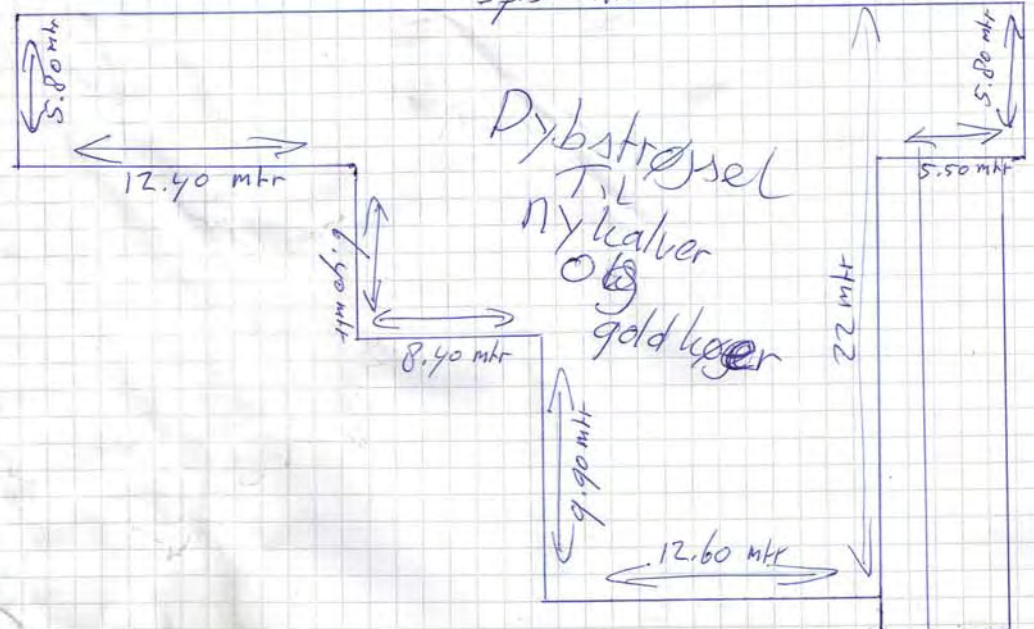 5.80 mtr
5.80 mtr
12.40 mtr
5.50 mtr
Dybstrøssel
TiL
nykalver
Og
goldkøer
6.40 mtr
8.40 mtr
22 mtr
9.90 mtr
12.60 mtr